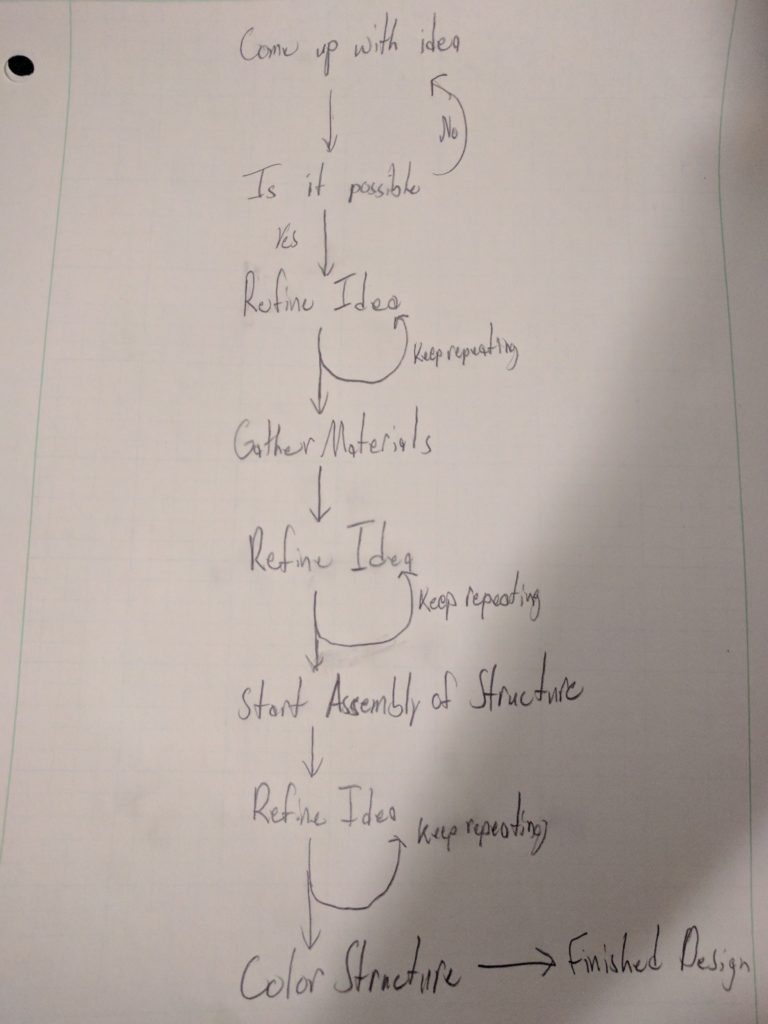 Come up with idea
No
Is it possible
Yes
Refine Idea
Keep repeating
Gather Materials
Refine Idea
Keep repeating
Start Assembly of Structure
Refine Idea
Keep repeating
Color Structure Finished Design